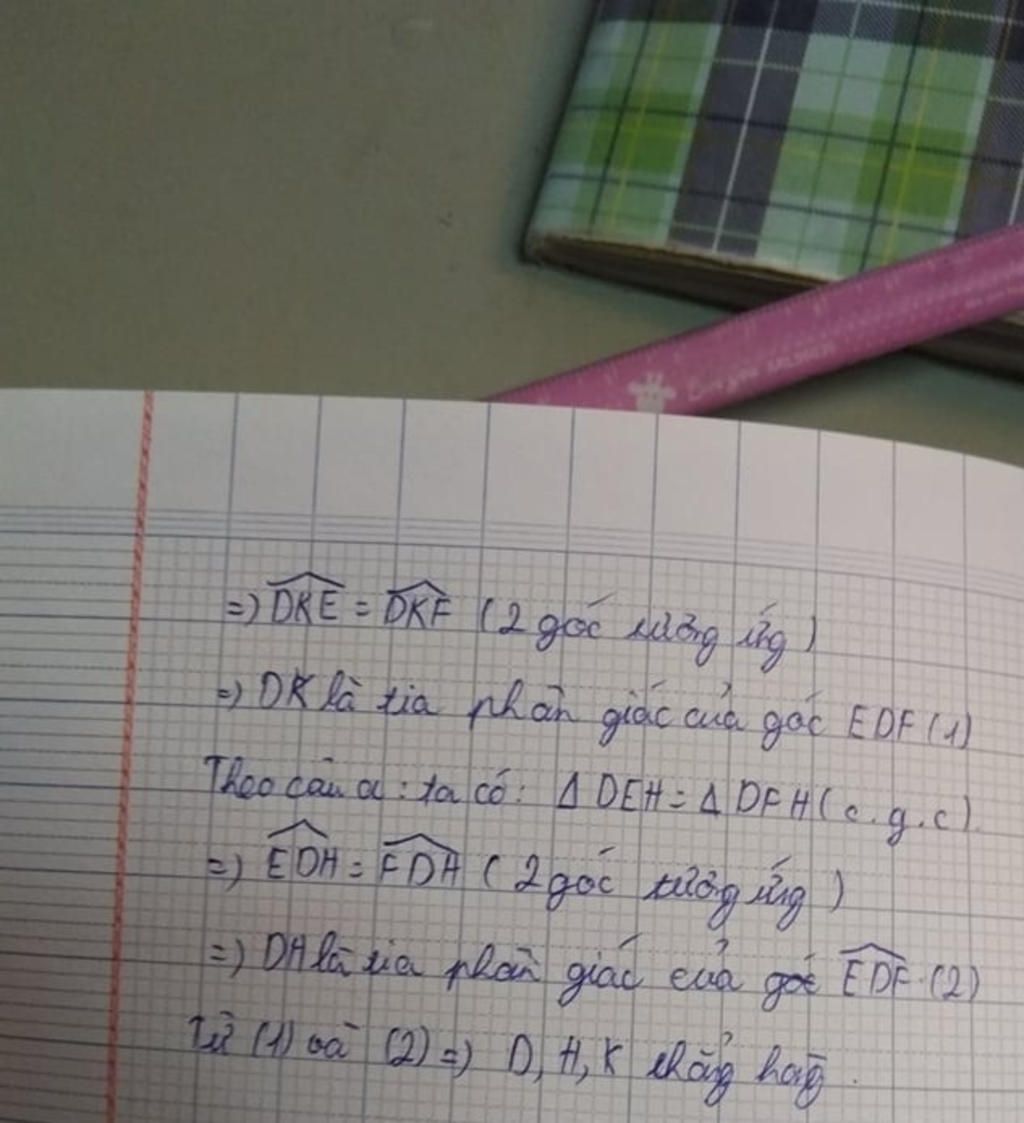 => DKE = DKF (2 góc tương ứng)
=> DK là tia phân giác của góc EDF (1)
Theo câu a: ta có: Δ DEH = Δ DFH (c.g.c).
=> EDH = FDH (2 góc tương ứng)
=> DH là tia phân giác của góc EDF. (2)
Từ (1) và (2) => D, H, K thẳng hàng.